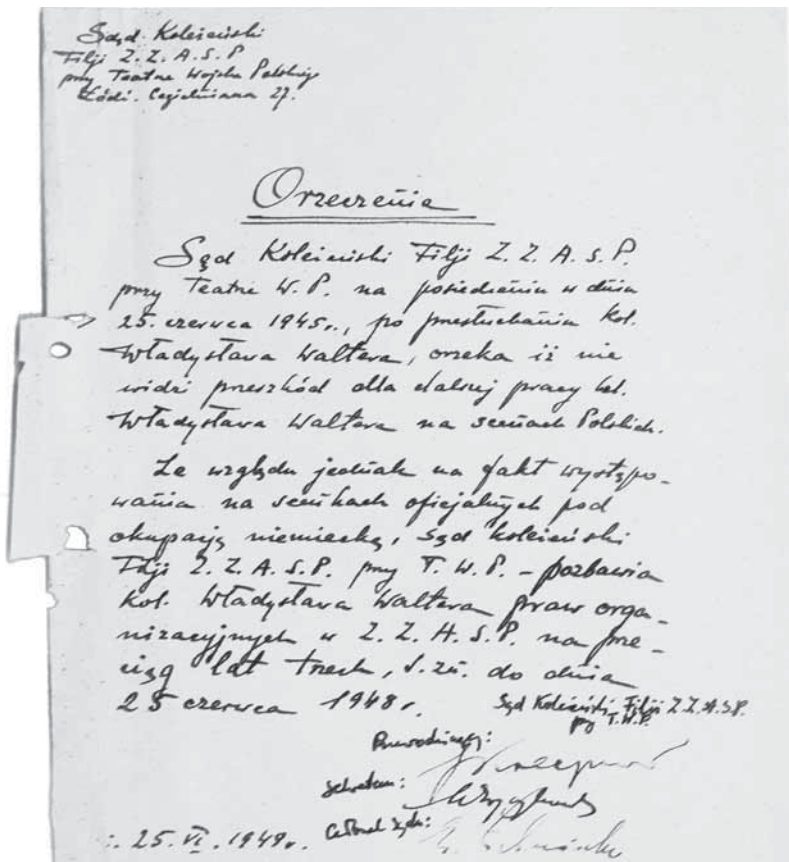 Sąd Koleżeński
Filji Z.Z.A.S.P
przy Teatrze Wojska Polskiego
Łódź. Cegielniana 27.
Orzeczenie
Sąd Koleżeński Filji Z. Z. A. S. P.
przy Teatrze W. P. na posiedzeniu w dniu
25. czerwca 1945r., po przesłuchaniu kol.
Władysława Waltera, orzeka iż nie
widzi przeszkód dla dalszej pracy kol.
Władysława Waltera na scenach Polskich.
Ze względu jednak na fakt występo-
wania na scenkach oficjalnych pod
okupacją niemiecką, Sąd koleżeński
Filji Z. Z. A. S. P. przy T. W. P. - pozbawia
kol. Władysława Waltera praw orga-
nizacyjnych w Z. Z. A. S. P. na prze-
ciąg lat trzech, t. zn. do dnia
25 czerwca 1948r.
Sąd Koleżeński Filji Z.Z.A.S.P.
przy T.W.P.
Przewodniczący:
Sekretarz:
Członek Sądu:
25. VI. 1949r.